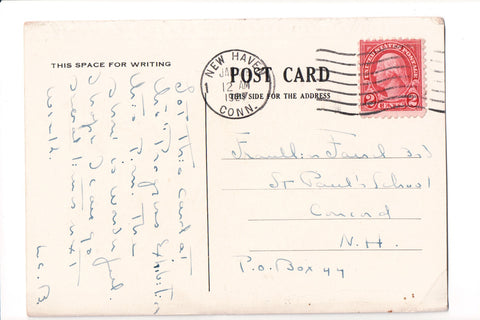 THIS SPACE FOR WRITING
POST CARD
THIS SIDE FOR THE ADDRESS
NEW HAVEN
1
12 AM
CONN.
UNITED STATES POSTAGE
2 CENTS 2
Got this card at
the Exhibition
this P.M. The
show is wonderful.
hope I can go
several times next
week.
St Paul's School
Concord
N.H.
P.O. Box 44